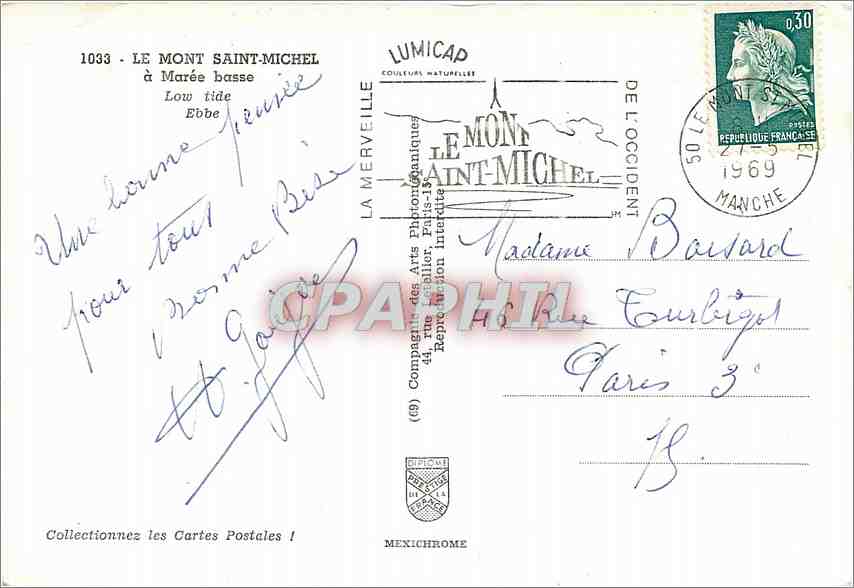 1033 - LE MONT SAINT-MICHEL
à Marée basse
Low tide
Ebbe
Une bonne pensée
pour tout
Bonne Bise
LUMICAP
COULEURS NATURELLES
LA MERVEILLE
LE MONT
SAINT-MICHEL
DE L'OCCIDENT
0,30
POSTES
REPUBLIQUE FRANÇAISE
50 LE MONT ST MICHEL
27-5
1969
MANCHE
(69) Compagnie des Arts Photomécaniques
44, rue Letellier, Paris-15e
Reproduction interdite
Madame Boisard
46 Rue Turbigot
Paris 3e
CPAPHIL
DIPLOME
PRESTIGE
DE LA
FRANCE
Collectionnez les Cartes Postales !
MEXICHROME